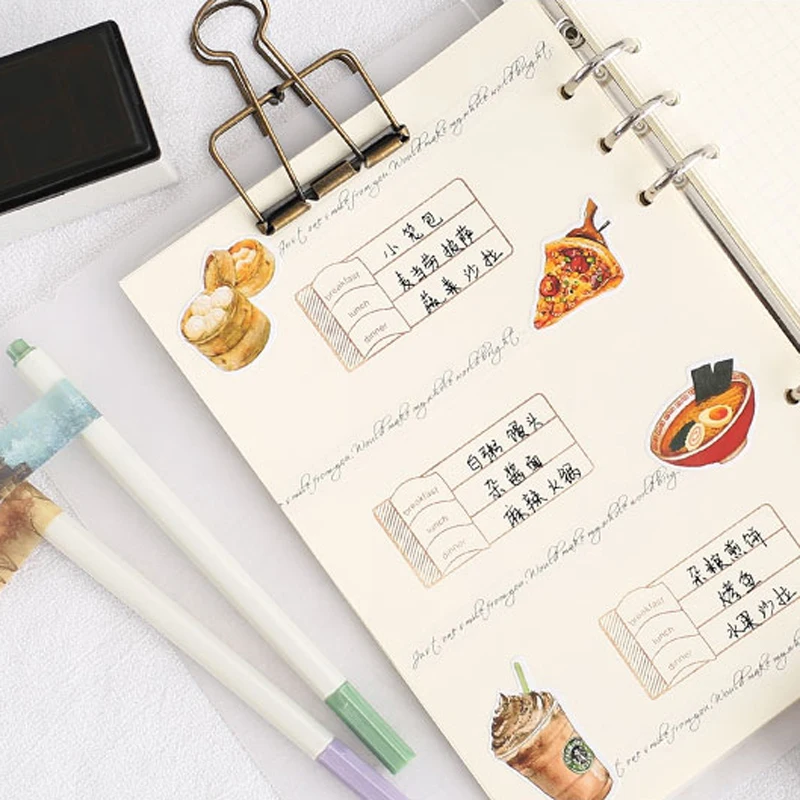 Just one smile from you. Would make my whole world bright.
breakfast 小笼包
lunch 麦当劳披萨
dinner 蔬菜沙拉
smile from you. Would make my whole world bright.
breakfast 白粥 馒头
lunch 杂酱面
dinner 麻辣火锅
Just one smile from you. Would make my whole world brig
breakfast 杂粮煎饼
lunch 烤鱼
dinner 水果沙拉
Just one smile from you. Would make my whole